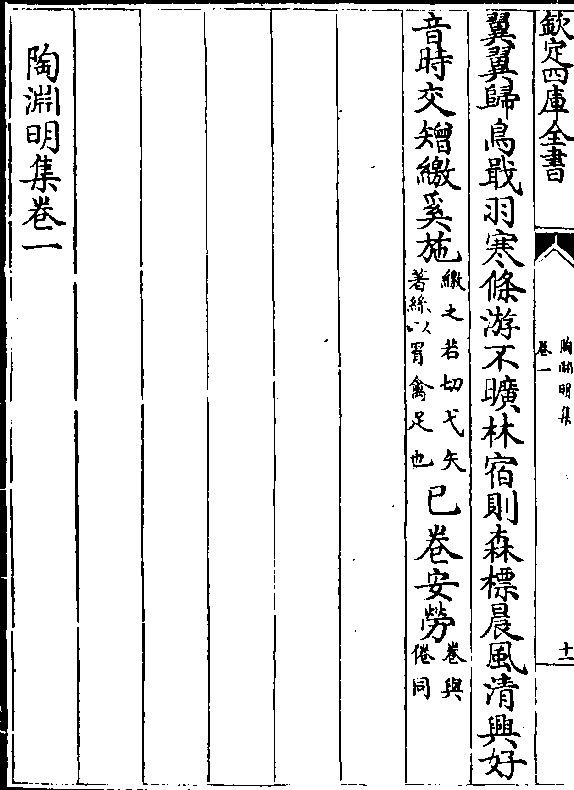 欽定四庫全書
陶淵明集
卷一
十一
翼翼歸鳥戢羽寒條游不曠林宿則森標晨風清興好
音時交矰繳奚施繳之若切弋矢著絲以罥禽足也已卷安勞卷與倦同
陶淵明集卷一